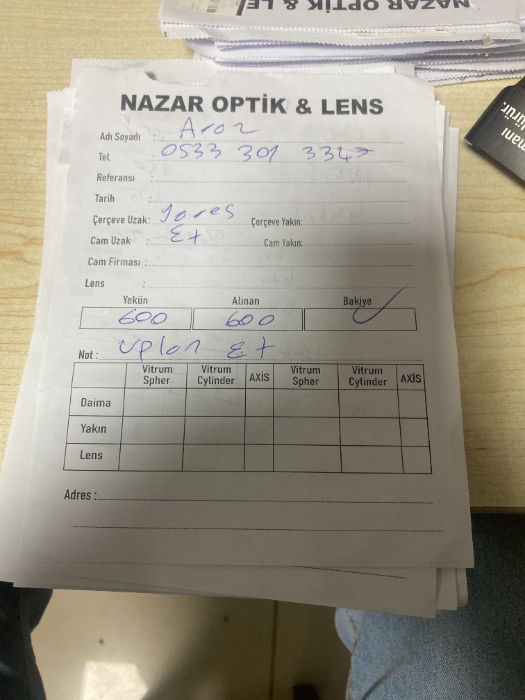 NAZAR OPTİK & LE
NAZAR OPTİK & LENS
Adı Soyadı :
Tel. : 0533 301 3347
Referansı :
Tarih :
Çerçeve Uzak: Çerçeve Yakın:
Cam Uzak : Et Cam Yakın:
Cam Firması :
Lens :
Yekün Alınan Bakiye
600 600 ✓
Not : Uplon Et
Vitrum Spher Vitrum Cylinder AXİS Vitrum Spher Vitrum Cylinder AXİS
Daima
Yakın
Lens
Adres :